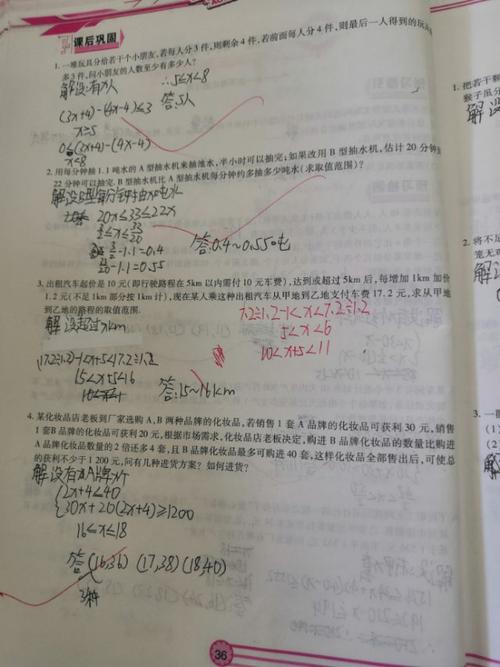 课后巩固
1. 一堆玩具分给若干个小朋友,若每人分3件,则剩余4件,若前面每人分4件,则最后一人得到的玩具
多3件,问小朋友的人数至少有多少人?
解设:有x人
∴5≤x<8
(3x+4)-(4x-4)≤3
答:5人
x≥5
0≤(3x+4)-(4x-4)
x<8
2. 用每分钟抽1.1吨水的A型抽水机来抽池水,半小时可以抽完;如果改用B型抽水机,估计20分钟到
22分钟可以抽完. B型抽水机比A型抽水机每分钟约多抽多少吨水(求取值范围)?
解设B型每分钟抽x吨水
20x≤33≤22x
3/2≤x≤33/20
3/2-1.1=0.4
答:0.4~0.55吨
33/20-1.1=0.55
3. 出租汽车起价是10元(即行驶路程在5km以内需付10元车费),达到或超过5km后,每增加1km加价
1.2元(不足1km部分按1km计),现在某人乘这种出租汽车从甲地到乙地支付车费17.2元,求从甲地
到乙地的路程的取值范围.
7.2÷1.2-1<x≤7.2÷1.2
解设超过xkm
5<x≤6
10<x+5≤11
(17.2÷1.2)-1<x+5≤17.2÷1.2
15<x+5≤16
答:15~16km
4. 某化妆品店老板到厂家选购A,B两种品牌的化妆品,若销售1套A品牌的化妆品可获利30元,销售
1套B品牌的化妆品可获利20元,根据市场需求,化妆品店老板决定,购进B品牌化妆品的数量比购进
A品牌化妆品数量的2倍还多4套,且B品牌化妆品最多可购进40套,这样化妆品全部售出后,可使总
的获利不少于1200元,问有几种进货方案?如何进货?
解设有x A牌
2x+4≤40
30x+20(2x+4)≥1200
16≤x≤18
答(16,36) (17,38) (18,40)
3种
36
1. 把若干颗
解设
2. 将不足
解设
3. 一
(1)
(2